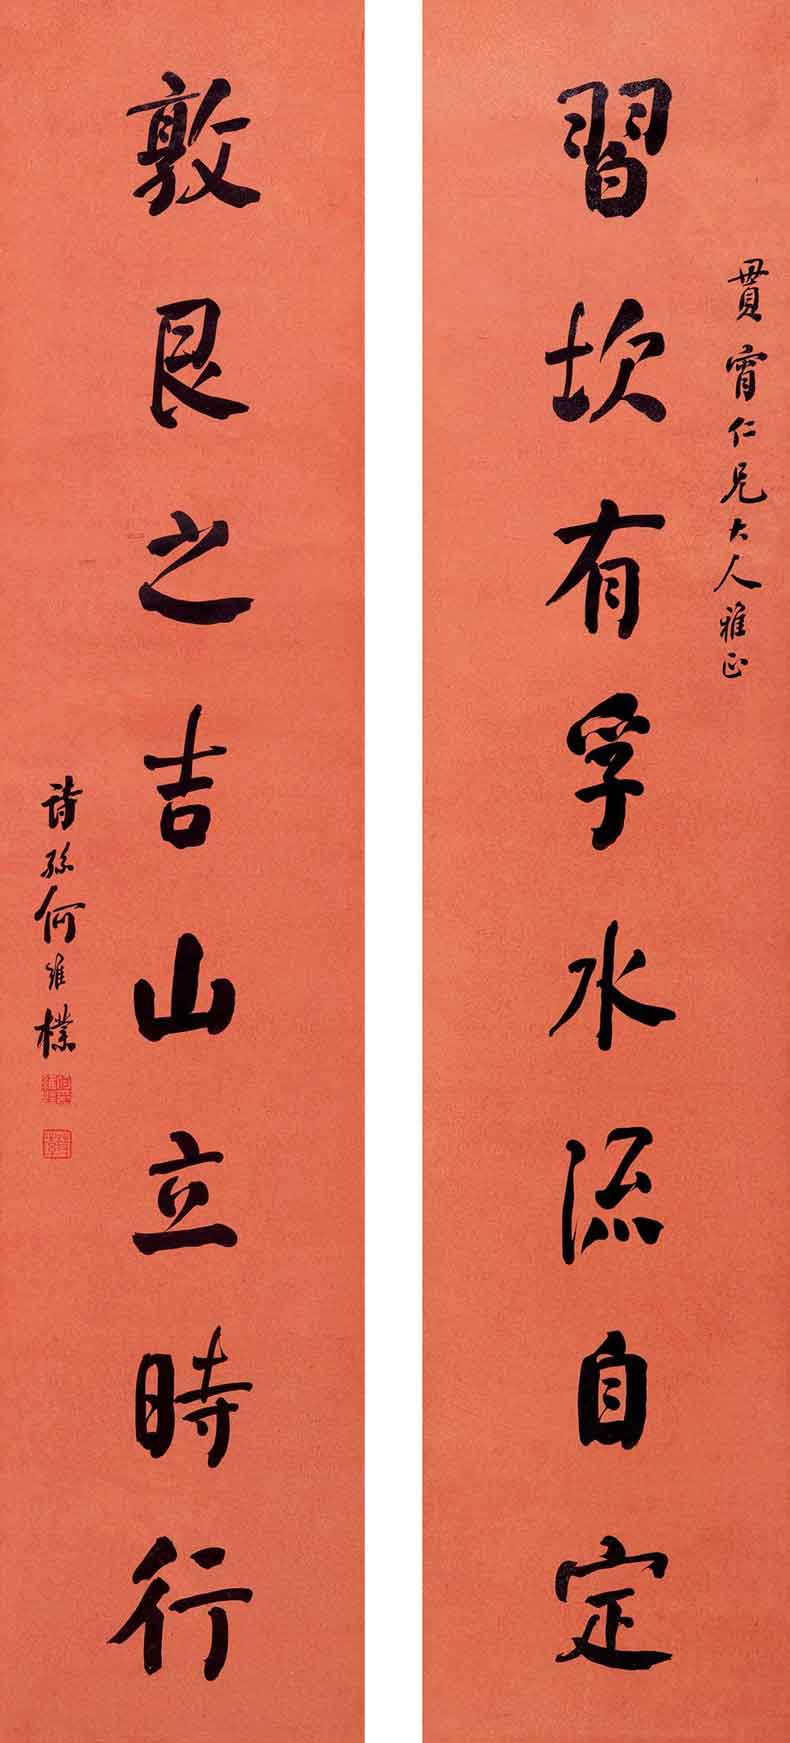 貫甯仁兄大人雅正
習坎有孚水流自定
敦艮之吉山立時行
詩孫何維樸